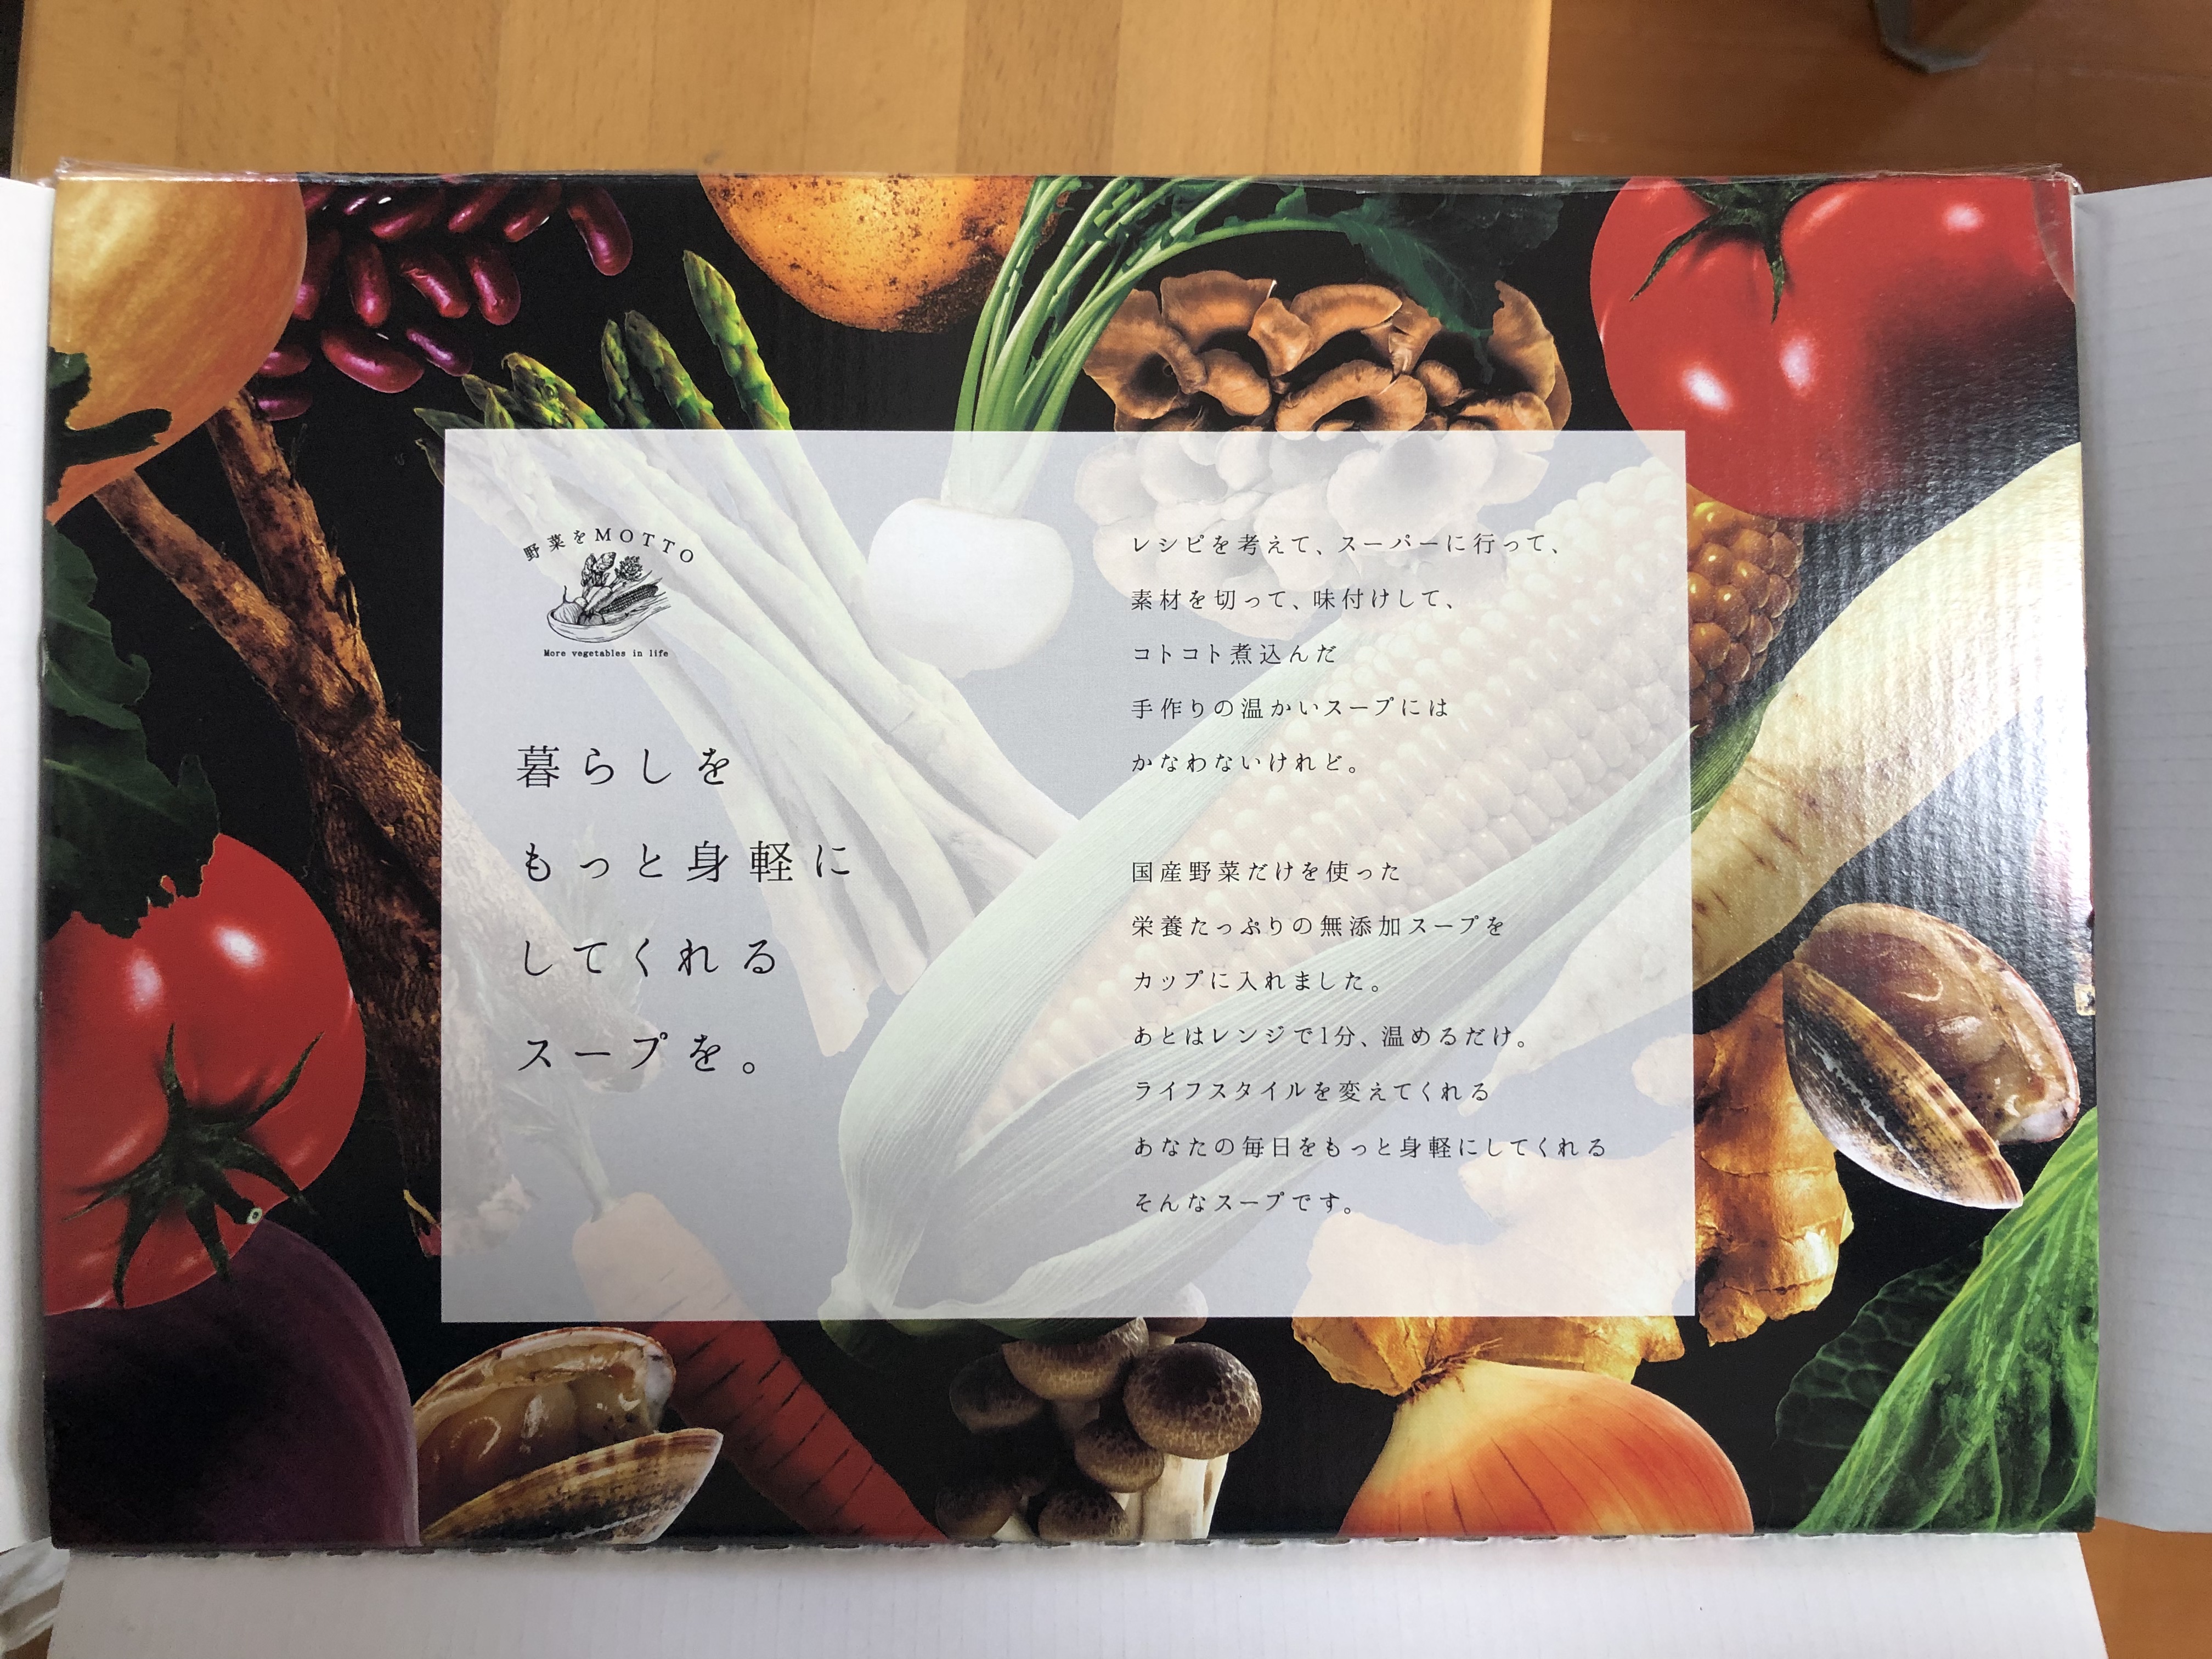 野菜をMOTTO
More vegetables in life
暮らしを
もっと身軽に
してくれる
スープを。
レシピを考えて、スーパーに行って、
素材を切って、味付けして、
コトコト煮込んだ
手作りの温かいスープには
かなわないけれど。
国産野菜だけを使った
栄養たっぷりの無添加スープを
カップに入れました。
あとはレンジで1分、温めるだけ。
ライフスタイルを変えてくれる
あなたの毎日をもっと身軽にしてくれる
そんなスープです。